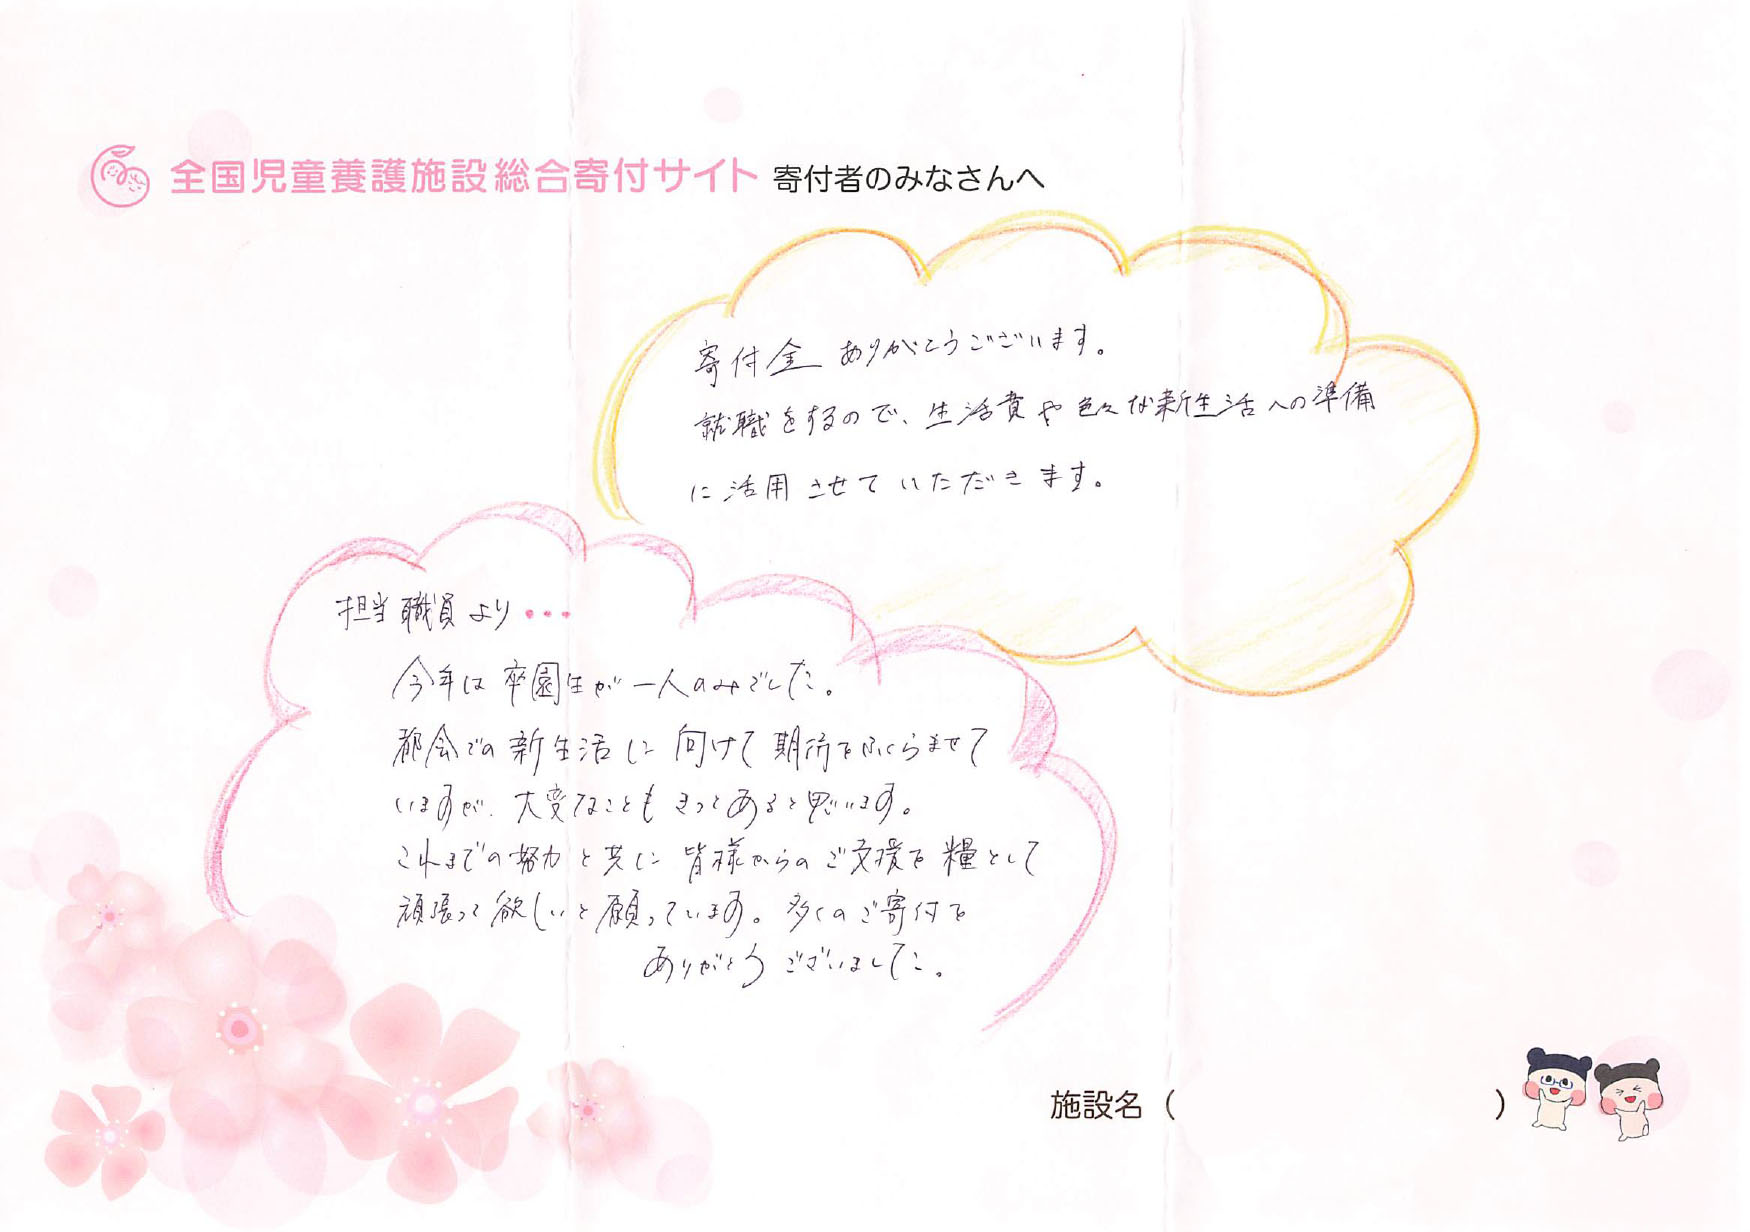 全国児童養護施設総合寄付サイト 寄付者のみなさんへ
寄付金ありがとうございます。
就職をするので、生活費や色々な新生活への準備
に活用させていただきます。
担当職員より・・・
今年は卒園生が一人のみでした。
都会での新生活に向けて期待をふくらませて
いますが、大変なこともきっとあると思います。
これまでの努力と共に皆様からのご支援を糧として
頑張って欲しいと願っています。多くのご寄付を
ありがとうございました。
施設名（　　　）